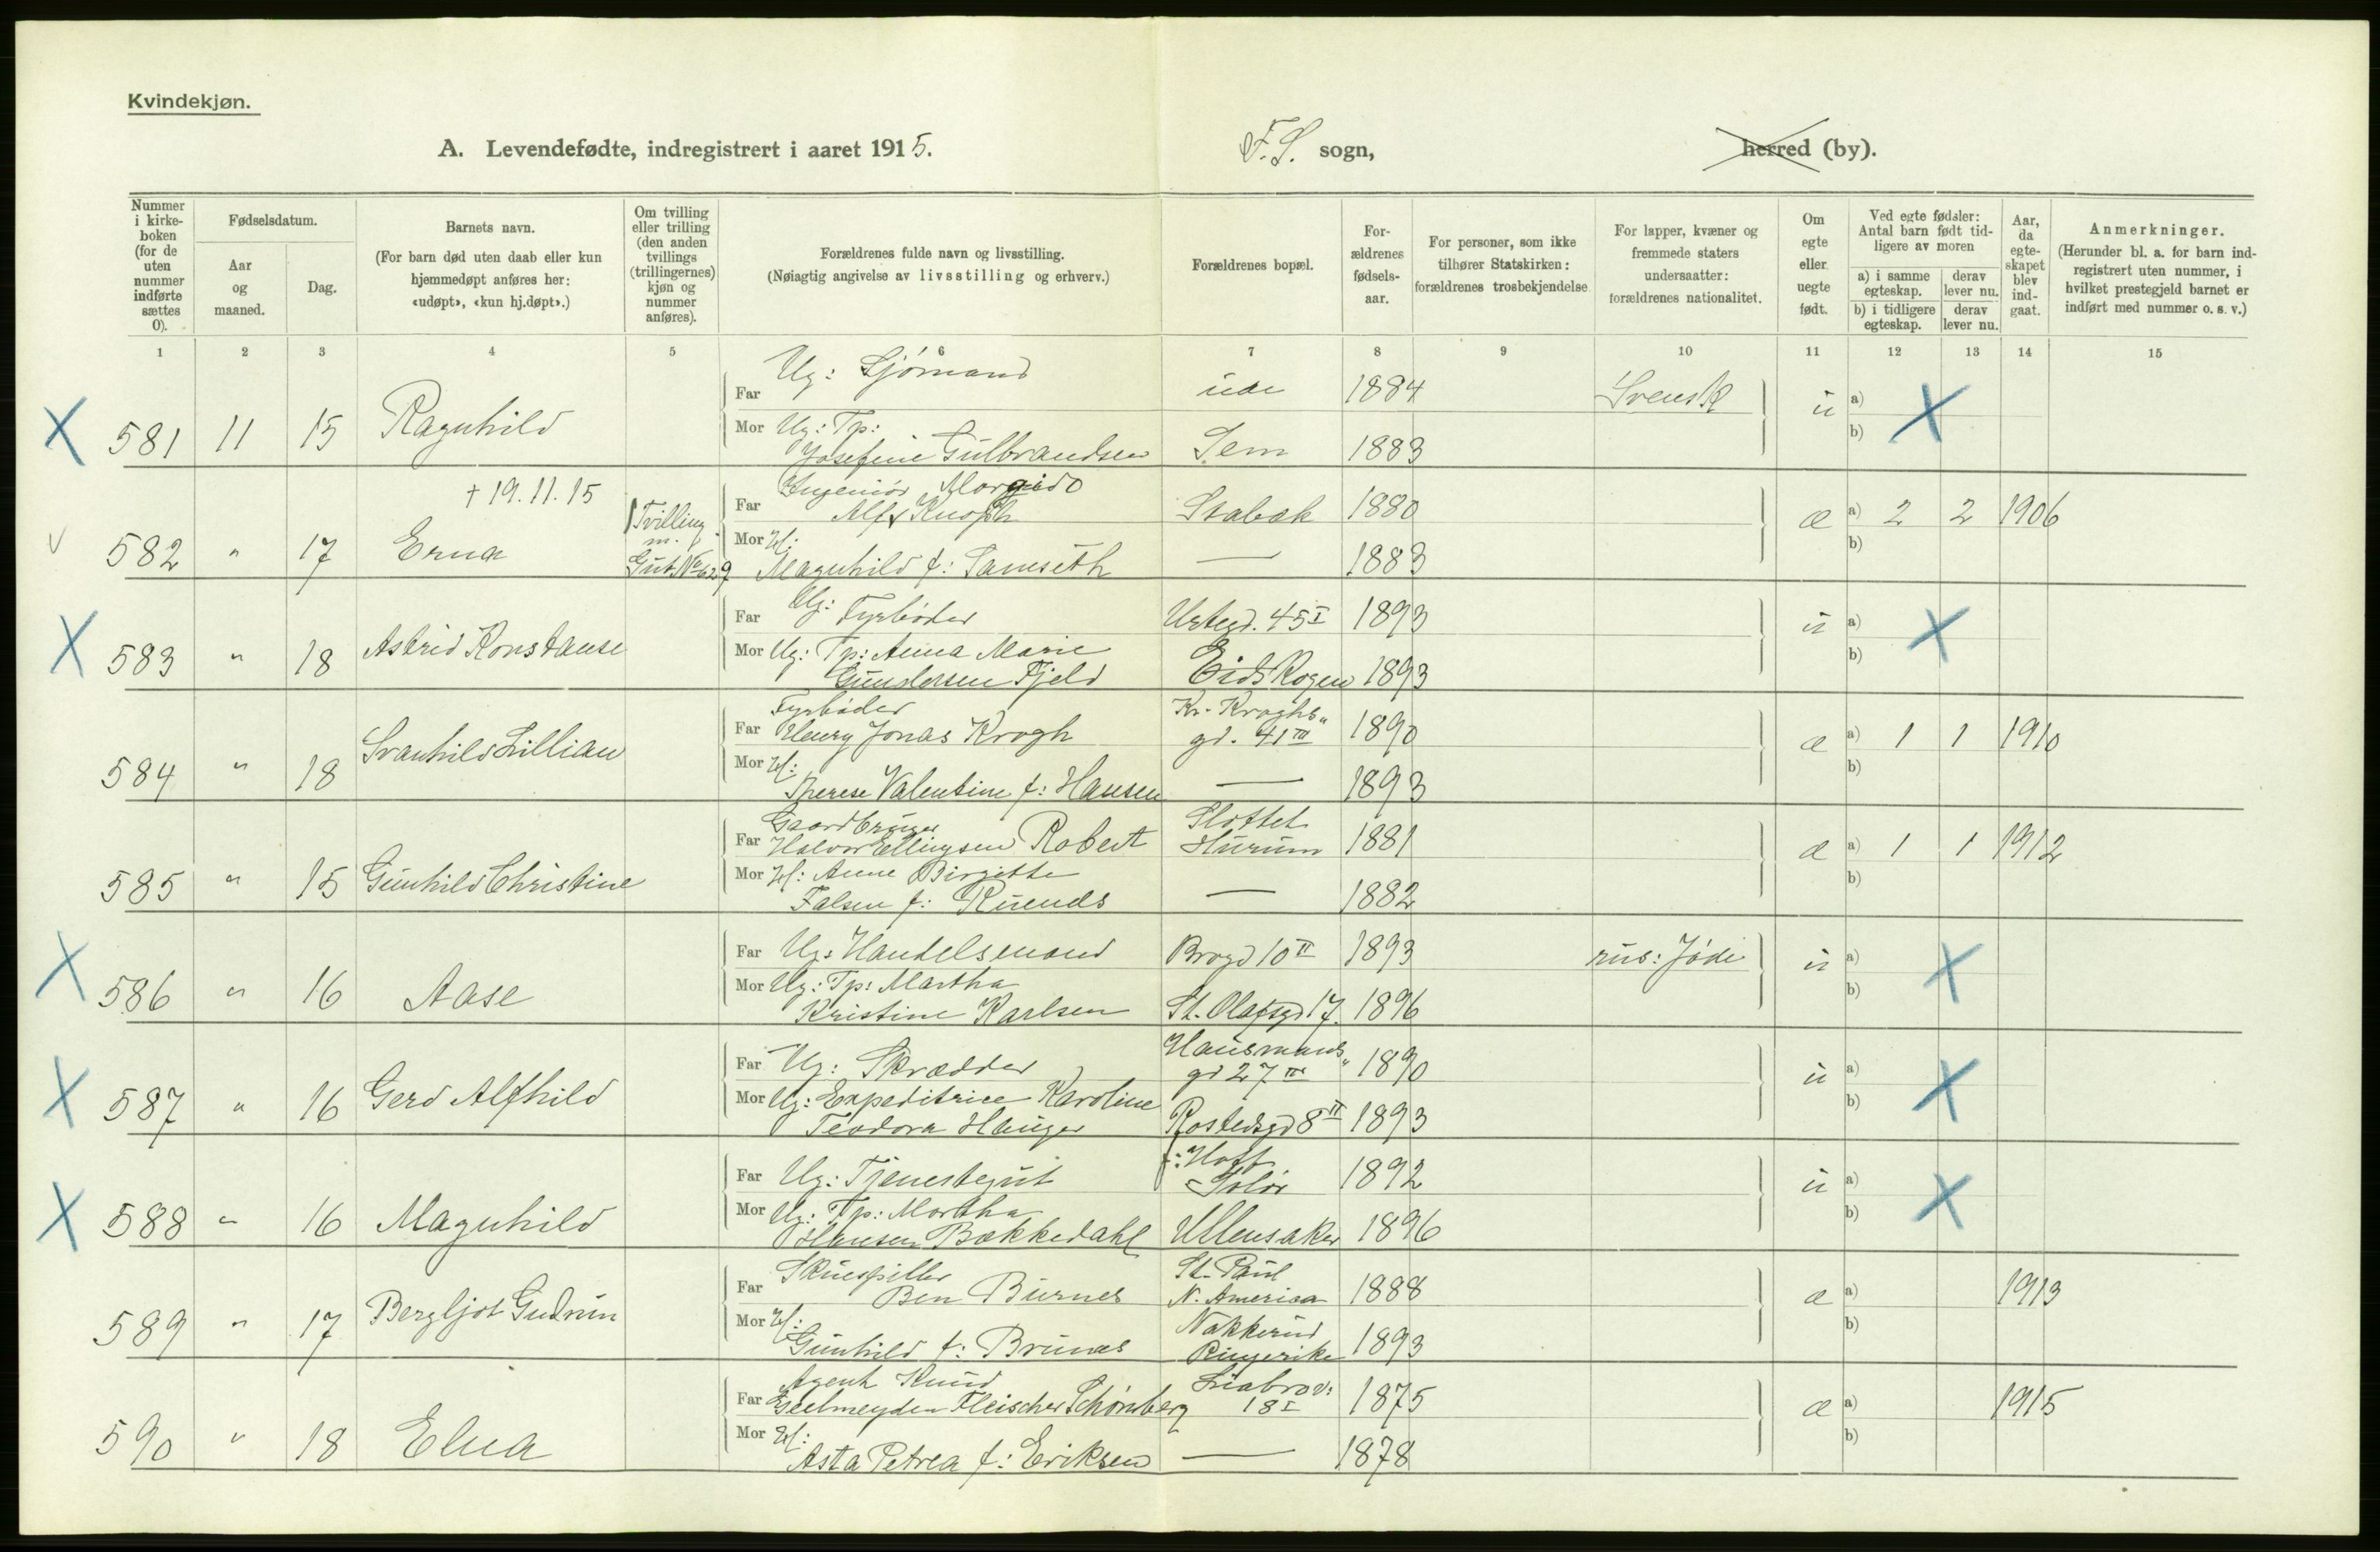 Kvindekjøn.
A. Levendefødte, indregistrert i aaret 1915.
F.S. sogn,
herred (by).
Nummer i kirkeboken (for de uten nummer indførte sættes 0).
Fødselsdatum.
Aar og maaned.
Dag.
Barnets navn.
(For barn død uten daab eller kun hjemmedøpt anføres her: «udøpt», «kun hj.døpt».)
Om tvilling eller trilling (den anden tvillings (trillingernes) kjøn og nummer anføres).
Forældrenes fulde navn og livsstilling.
(Nøiagtig angivelse av livsstilling og erhverv.)
Forældrenes bopæl.
Forældrenes fødselsaar.
For personer, som ikke tilhører Statskirken: forældrenes trosbekjendelse
For lapper, kvæner og fremmede staters undersaatter: forældrenes nationalitet.
Om egte eller uegte født.
Ved egte fødsler: Antal barn født tidligere av moren
a) i samme egteskap.
derav lever nu.
b) i tidligere egteskap.
derav lever nu.
Aar, da egteskapet blev indgaat.
Anmerkninger.
(Herunder bl. a. for barn indregistrert uten nummer, i hvilket prestegjeld barnet er indført med nummer o. s. v.)
1 2 3 4 5 6 7 8 9 10 11 12 13 14 15
Far Ug: Sjømand ude 1884 Svensk
581 11 15 Ragnhild ü a) b)
Mor Ug: Tp: Josefine Gulbrandsen Sem 1883
† 19.11.15
Far Ingeniør Alf Knoph Stabæk 1880
582 " 17 Erna Tvilling m. Gut No 629 æ a) 2 2 1906 b)
Mor H: Magnhild f: Samseth — 1883
Far Ug: Fyrbøder Urtegd. 45 I 1893
583 " 18 Astrid Konstanse ü a) b)
Mor Ug: Tp: Anna Marie Gundersen Fjeld Eidskogen 1893
Far Fyrbøder Henry Jonas Krogh Kr. Kroghs gd. 41 III 1890
584 " 18 Svanhild Lillian æ a) 1 1 1910 b)
Mor H: Therese Valentine f: Hansen — 1893
Far Gaardbruger Halvor Ellingsen Robert Slottet Hurum 1881
585 " 15 Gunhild Christine æ a) 1 1 1912 b)
Mor H: Anne Birgitte Falsen f: — 1882
Far Ug: Handelsmand Brogd 10 II 1893 rus: Jøde
586 " 16 Aase ü a) b)
Mor Ug: Tp: Martha Kristine Karlsen St. Olafsgd 17. 1896
Far Ug: Skrædder Hausmans gd 27 III 1890
587 " 16 Gerd Alfhild ü a) b)
Mor Ug: Expeditrice Karoline Teodora Hauger Rostedsgd 8 II 1893
Far Ug: Tjenestegut f: Hoff Solør 1892
588 " 16 Magnhild ü a) b)
Mor Ug: Tp: Martha Hansen Bækkedahl Ullensaker 1896
Far Skuespiller Ben Burnes St. Paul N. Amerika 1888
589 " 17 Bergljot Gudrun æ a) 1913 b)
Mor H: Gunhild f: Brunæs Nakkerud Ringerike 1893
Far Agent Knud Geelmeyden Fleischer Schønberg Liabrov: 18 I 1875
590 " 18 Elna æ a) 1915 b)
Mor H: Asta Petrea f: Eriksen — 1878